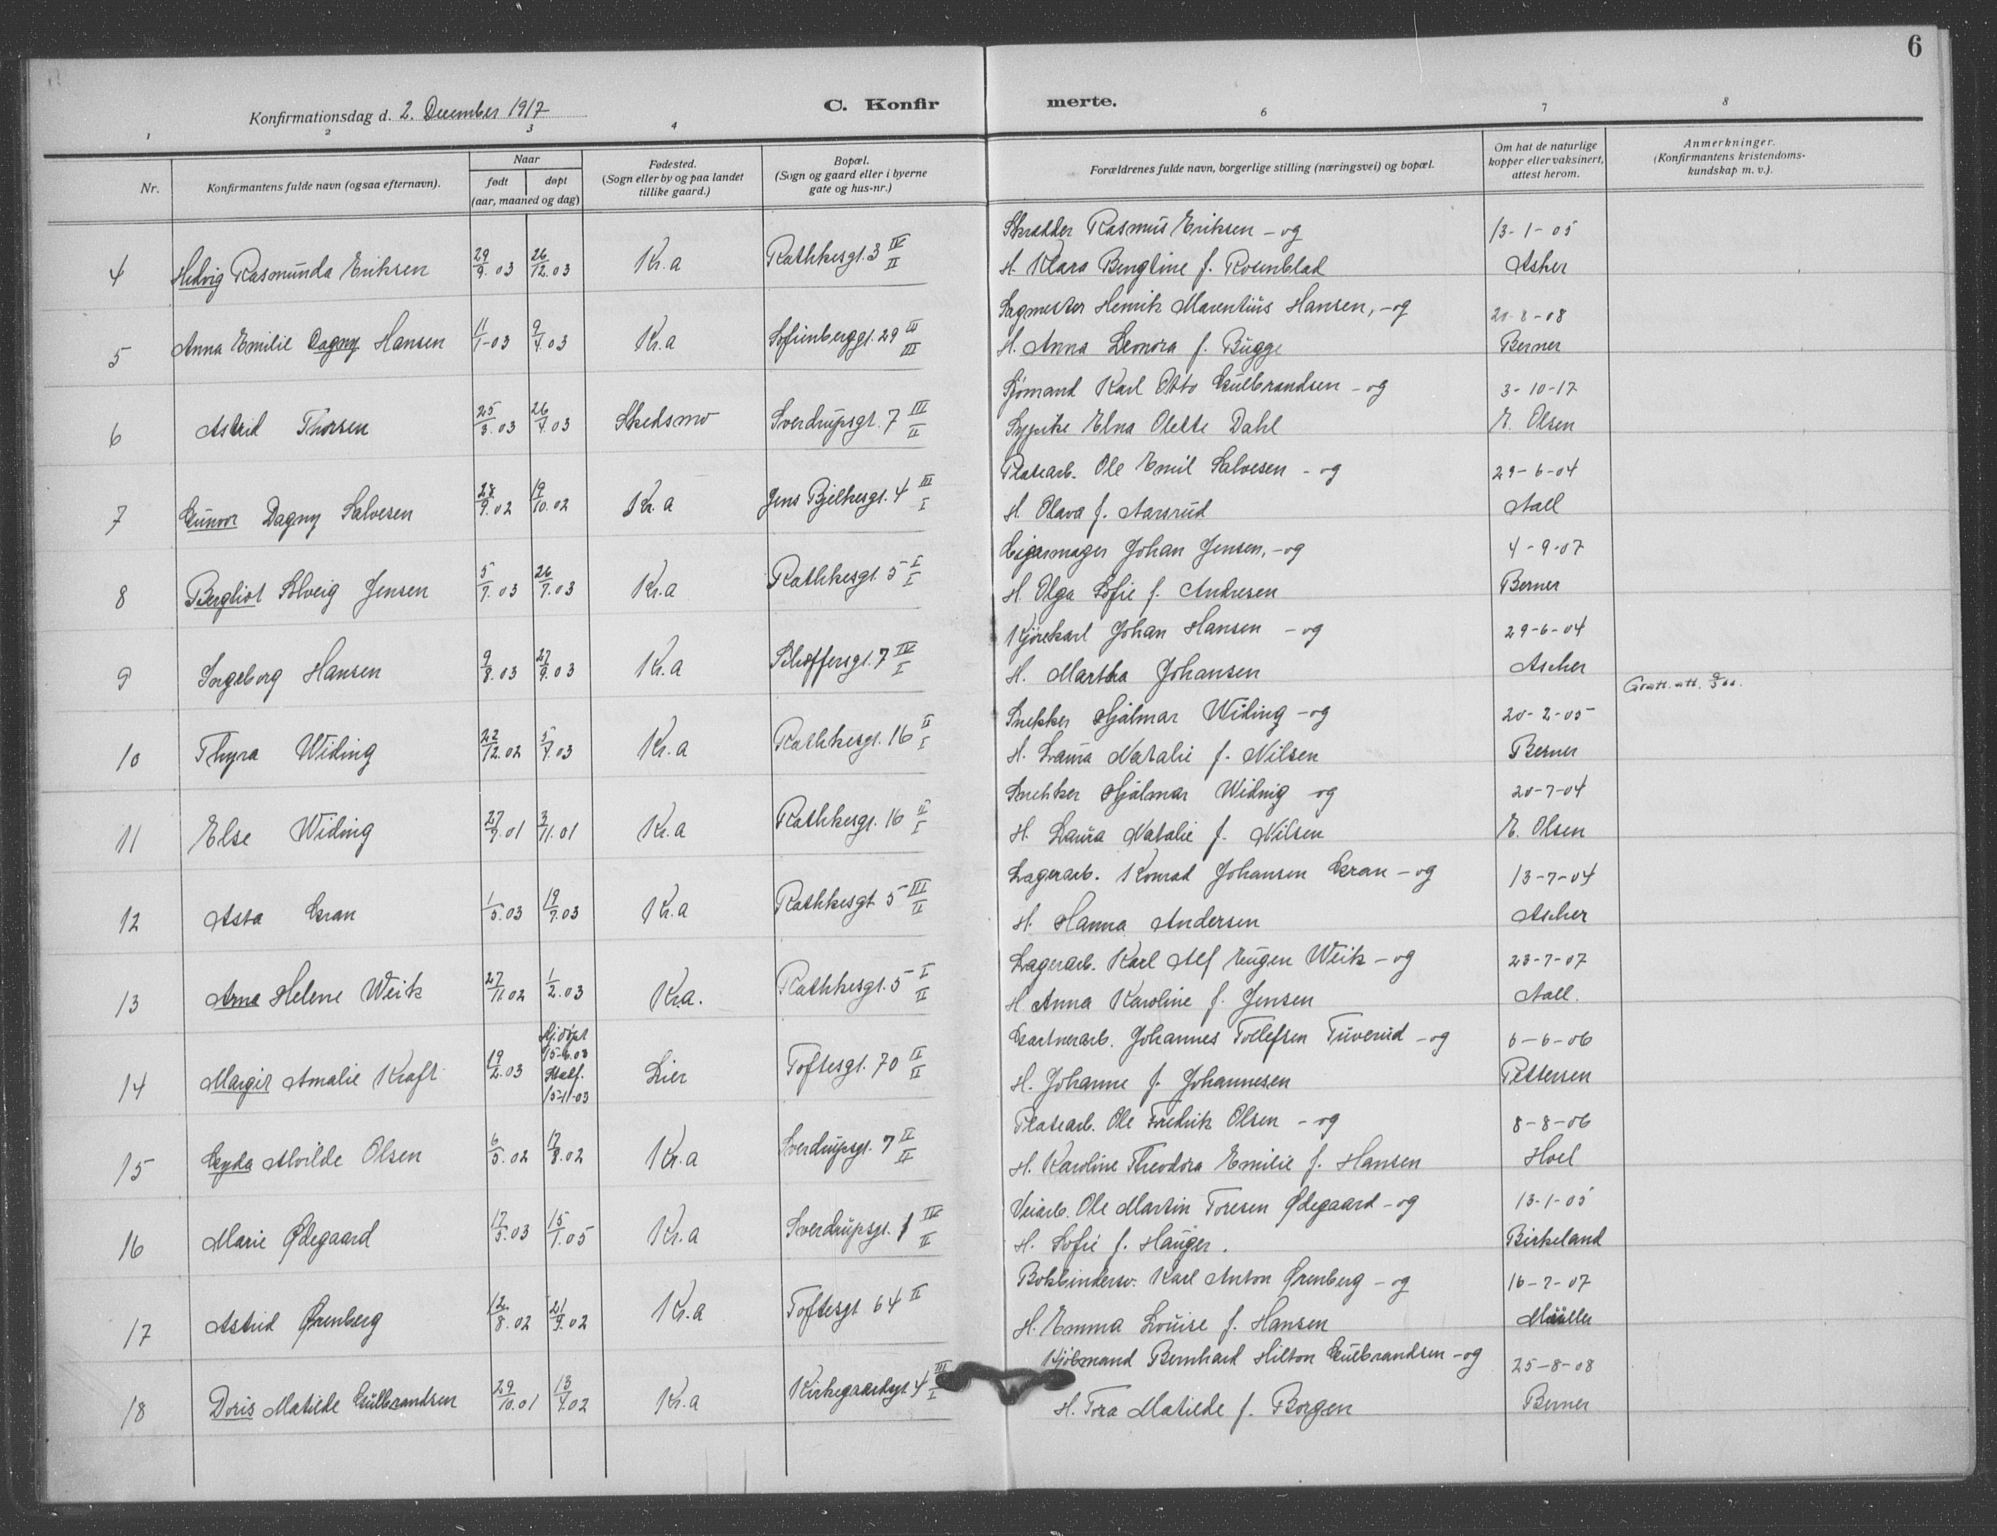 6
Konfirmationsdag d. 2. December 1917
C. Konfirmerte.
1 2 3 4 6 7 8
Nr.
Konfirmantens fulde navn (ogsaa efternavn).
Naar
født døpt
(aar, maaned og dag)
Fødested.
(Sogn eller by og paa landet
tillike gaard.)
Bopæl.
(Sogn og gaard eller i byerne
gate og hus-nr.)
Forældrenes fulde navn, borgerlige stilling (næringsvei) og bopæl.
Om hat de naturlige
kopper eller vaksinert,
attest herom.
Anmerkninger.
(Konfirmantens kristendoms-
kundskap m. v.).
4 Hedvig Rasmunda Eriksen 29/9.03 26/12.03 Kr.a Rathkesgt. 3 IV/II
Skrædder Rasmus Eriksen - og 13-1-05
H. Klara Bengtine f. Rosenblad Asher
5 Anna Emilie Dagny Hansen 11/1-03 9/4.03 Kr.a Sofienberggt. 29 III/III
Sagmester Henrik Marentius Hansen, - og 21-8-08
H. Anna Leonora f. Bugge Berner
6 Astrid Thorsen 25/3.03 26/4.03 Skedsmo Sverdrupsgt. 7 III/II
Sjømand Karl Otto Gulbrandsen - og 3-10-17
Sypike Elna Olette Dahl E. Olsen
7 Gunvor Dagny Salvesen 28/9.02 19/10.02 Kr.a Jens Bjelkesgt. 4 III/I
Platearb. Ole Emil Salvesen - og 29-6-04
H. Olava f. Aarsrud Aall
8 Bergliot Solveig Jensen 5/7.03 26/7.03 Kr.a Rathkesgt. 5 I/I
Cigarmager Johan Jensen, - og 4-9-07
H Olga Sofie f. Andresen Berner
9 Ingeborg Hansen 9/8.03 27/9.03 Kr.a Schoffersgt. 7 IV/I
Kjørekarl Johan Hansen - og 29-6-04
H. Martha Johansen Ascher
10 Thyra Widing 22/12.02 5/4.03 Kr.a Rathkesgt. 16 II/I
Snekker Hjalmar Widing - og 20-2-05
H. Laura Natalie f. Nilsen Berner
11 Else Widing 27/9.01 3/11.01 Kr.a Rathkesgt. 16 II/I
Snekker Hjalmar Widing - og 20-7-04
H. Laura Natalie f. Nilsen E. Olsen
12 Asta Gran 1/5.03 19/7.03 Kr.a Rathkesgt. 5 III/II
Lagerarb. Konrad Johansen Gran - og 13-7-04
H. Hanna Andersen Ascher
13 Arna Helene Weik 27/11.02 1/2.03 Kr.a. Rathkesgt. 5 I/II
Lagerarb. Karl Alf Eugen Weik - og 23-7-07
H. Anna Karoline f. Jensen Aall.
14 Margit Amalie Kraft 19/2.03 Hj.døpt 15-6.03 Stadf. 15-11-03 Lier Toftesgt. 70 II/II
Gartnerarb. Johannes Tollefsen Tuverud - og 6-6-06
H. Johanne f. Johannesen Pettersen
15 Gyda Alvilde Olsen 6/5.02 17/8.02 Kr.a Sverdrupsgt. 7 II/II
Platearb. Ole Fredrik Olsen - og 8-8-06
H. Karoline Theodora Emilie f. Hansen Hoel
16 Marie Ødegaard 17/5.03 15/1.05 Kr.a Sverdrupsgt. 1 IV/II
Veiarb. Ole Martin Toresen Ødegaard - og 13-1-05
H. Sofie f. Hauger. Birkeland
17 Astrid Ørenberg 12/8.02 21/9.02 Kr.a Toftesgt 64 II
Bokbindersv. Karl Anton Ørenberg - og 16-7-07
H. Emma Louise f. Hansen Müller
18 Doris Matilde Gulbrandsen 29/10.01 13/4.02 Kr.a Kirkegaardsgt 4 III/I
Kjøbmand Bernhard Hilton Gulbrandsen - og 25-8-08
H. Tora Matilde f. Borgen Berner